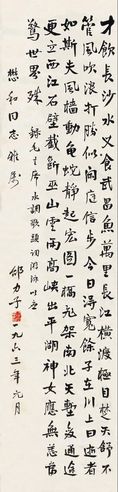 才飲長沙水又食武昌魚萬里長江橫渡極目楚天舒不
管風吹浪打勝似閒庭信步今日得寬餘子在川上曰逝者
如斯夫風檣動龜蛇靜起宏圖一橋飛架南北天塹變通途
更立西江石壁截斷巫山雲雨高峽出平湖神女應無恙當
驚世界殊 錄毛主席水調歌頭詞游泳
懋和同志雅屬
邵力子 一九六三年元月